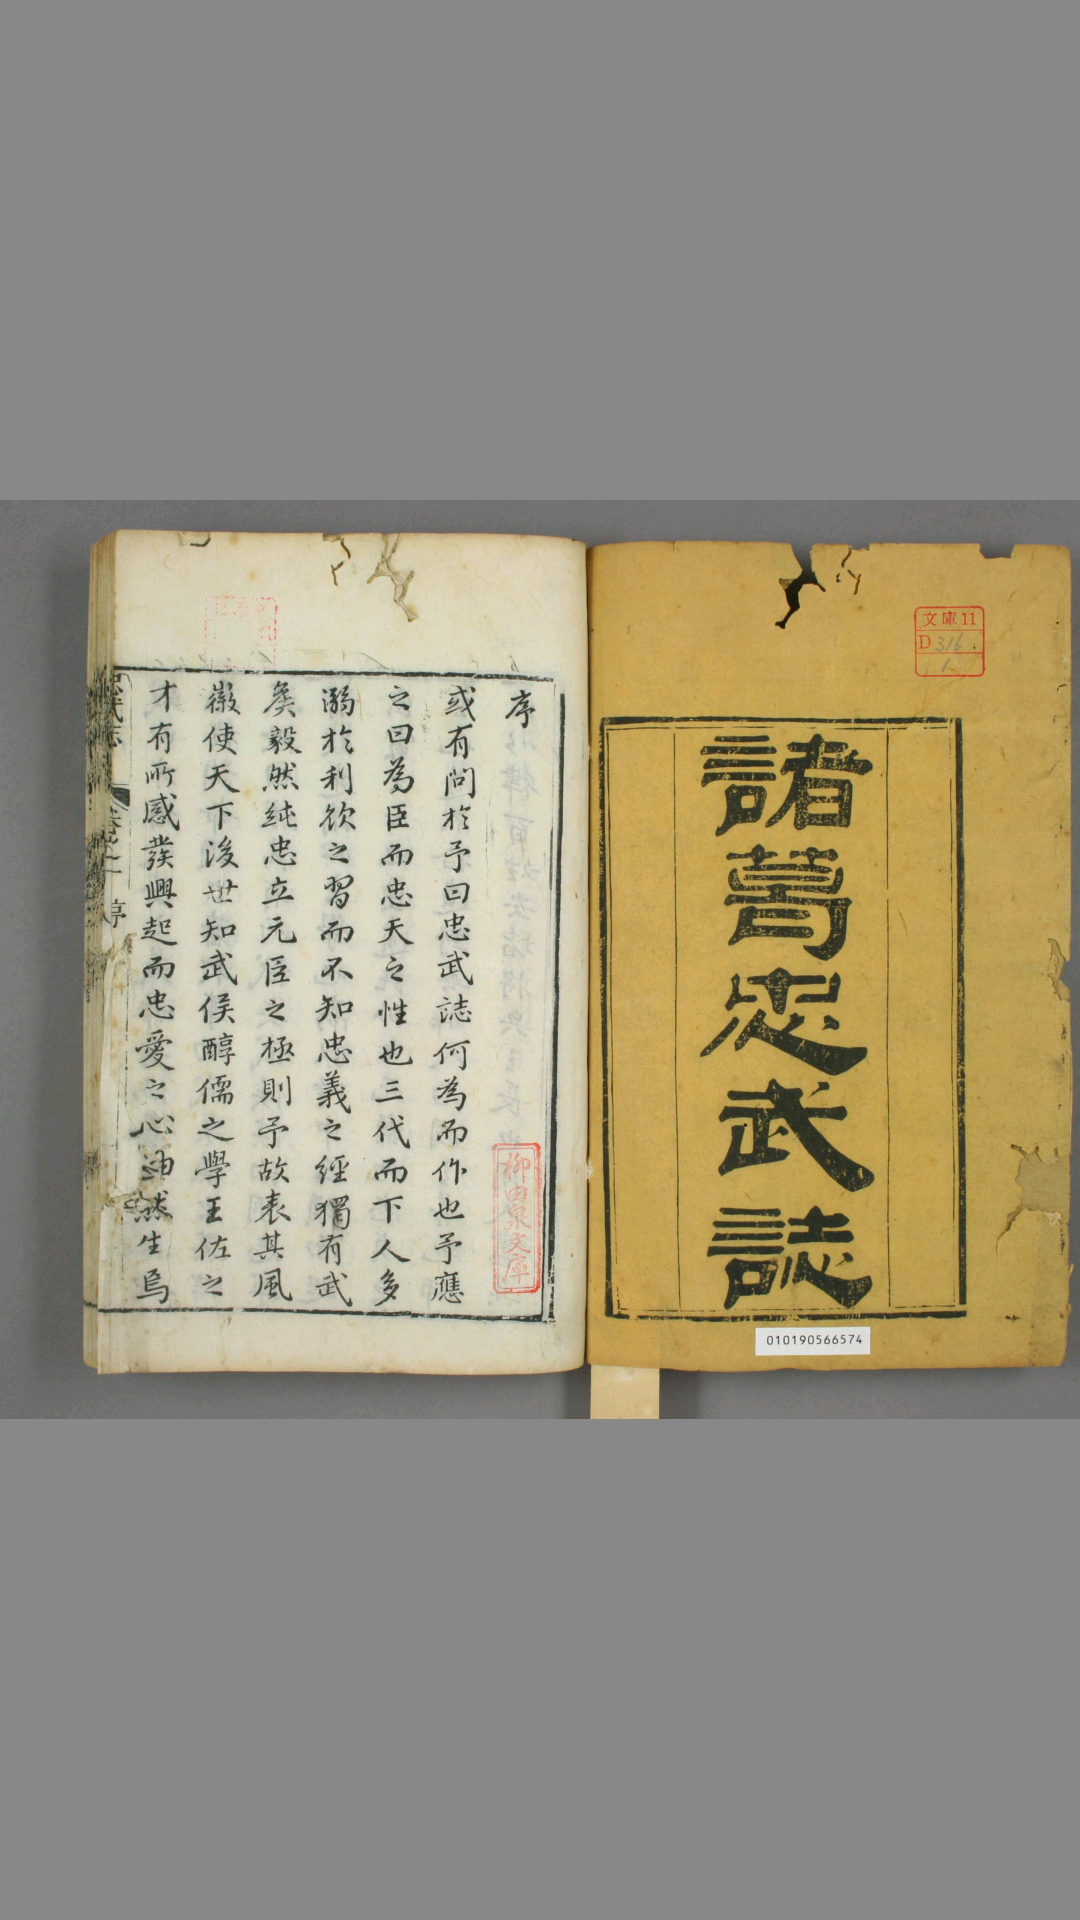 文庫11
D316.
1
諸葛忠武誌
010190566574
序
柳田泉文庫
或有問於予曰忠武誌何為而作也予應
之曰為臣而忠天之性也三代而下人多
溺於利欲之習而不知忠義之經獨有武
矦毅然純忠立元臣之極則予故表其風
徽使天下後世知武侯醇儒之學王佐之
才有所感發興起而忠愛之心油然生焉
忠武誌
卷之一 序